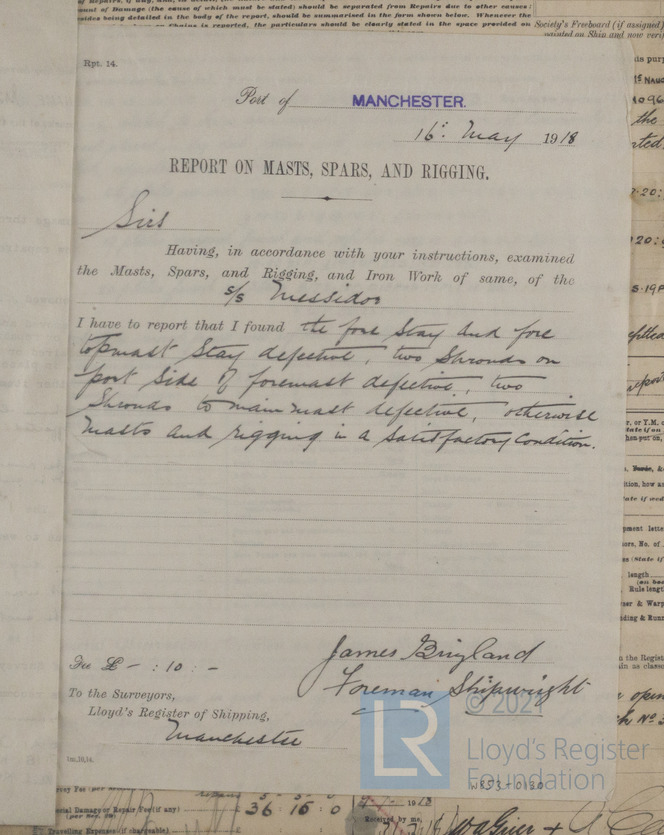 ount of Damage (the cause of which must be stated) should be separated from Repairs due to other causes;
sides being detailed in the body of the report, should be summarised in the form shown below. Whenever the
is reported, the particulars should be clearly stated in the space provided on
Society's Freeboard (if assigned)
painted on Ship and now verif
Rpt. 14.
Port of MANCHESTER.
16: May 1918
REPORT ON MASTS, SPARS, AND RIGGING.
Sirs
Having, in accordance with your instructions, examined
the Masts, Spars, and Rigging, and Iron Work of same, of the
s/s Messidor
I have to report that I found the fore Stay and fore
topmast Stay defective, two Shrouds on
port Side of foremast defective, two
Shrouds to main mast defective, otherwise
Masts and rigging in a Satisfactory Condition.
James
Foreman Shipwright
Fee £ - : 10 : -
To the Surveyors,
Lloyd's Register of Shipping,
Manchester
© 2021
LR
Lloyd's Register
Foundation
W853-0130
onal Damage or Repair Fee (if any) £ 36 : 15 : 0
(per Sec. 28)
Travelling Expenses (if chargeable)
Received by me,